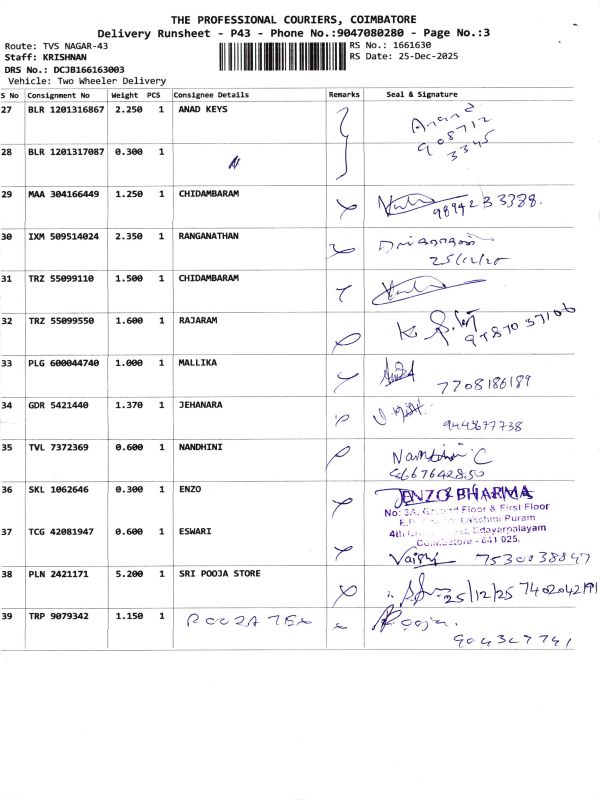 THE PROFESSIONAL COURIERS, COIMBATORE
Delivery Runsheet - P43 - Phone No.:9047080280 - Page No.:3
Route: TVS NAGAR-43
RS No.: 1661630
Staff: KRISHNAN
RS Date: 25-Dec-2025
DRS No.: DCJB166163003
Vehicle: Two Wheeler Delivery
S No Consignment No Weight PCS Consignee Details Remarks Seal & Signature
27 BLR 1201316867 2.250 1 ANAD KEYS Anand
908712
3345
28 BLR 1201317087 0.300 1
29 MAA 304166449 1.250 1 CHIDAMBARAM 9894233388.
30 IXM 509514024 2.350 1 RANGANATHAN
25/12/25
31 TRZ 55099110 1.500 1 CHIDAMBARAM
32 TRZ 55099550 1.600 1 RAJARAM
33 PLG 600044740 1.000 1 MALLIKA
7708186189
34 GDR 5421440 1.370 1 JEHANARA
35 TVL 7372369 0.600 1 NANDHINI Nandhini C
36 SKL 1062646 0.300 1 ENZO ENZO PHARMA
No: 3A, Ground Floor & First Floor
Lakshmi Puram
4th Udayarpalayam
Coimbatore - 641 025.
37 TCG 42081947 0.600 1 ESWARI
7530038847
38 PLN 2421171 5.200 1 SRI POOJA STORE 25/12/25
39 TRP 9079342 1.150 1 POOJA Pooja.